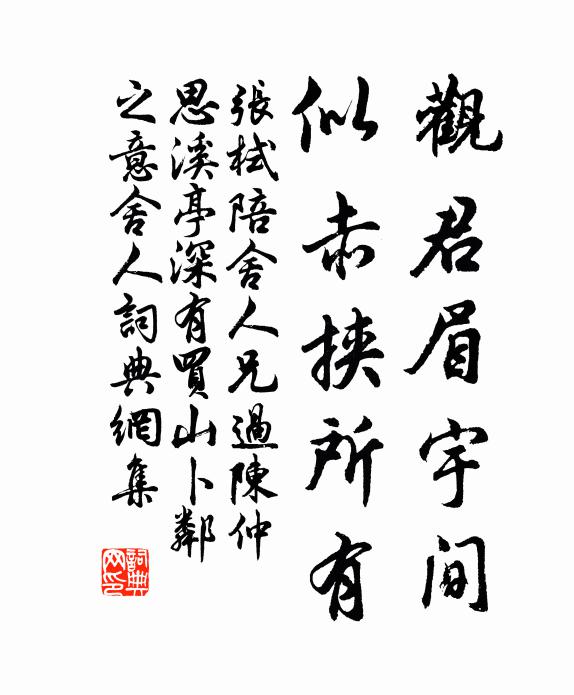 觀君眉宇间
似亦挟所有
張栻陪舍人兄過陳仲
思溪亭深有買山卜鄰
之意舍人詞典網集
詞典网印